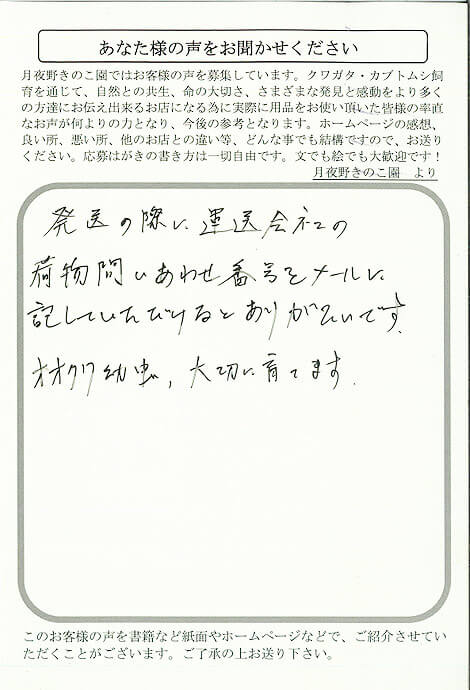 あなた様の声をお聞かせください
月夜野きのこ園ではお客様の声を募集しています。クワガタ・カブトムシ飼
育を通じて、自然との共生、命の大切さ、さまざまな発見と感動をより多く
の方達にお伝え出来るお店になる為に実際に用品をお使い頂いた皆様の率直
なお声が何よりの力となり、今後の参考となります。ホームページの感想、
良い所、悪い所、他のお店との違い等、どんな事でも結構ですので、お送り
ください。応募はがきの書き方は一切自由です。文でも絵でも大歓迎です！
月夜野きのこ園　より
発送の際に運送会社の
荷物問いあわせ番号をメールに
記していただけるとありがたいです。
オオクワ幼虫、大切に育てます。
このお客様の声を書籍など紙面やホームページなどで、ご紹介させてい
ただくことがございます。ご了承の上お送り下さい。